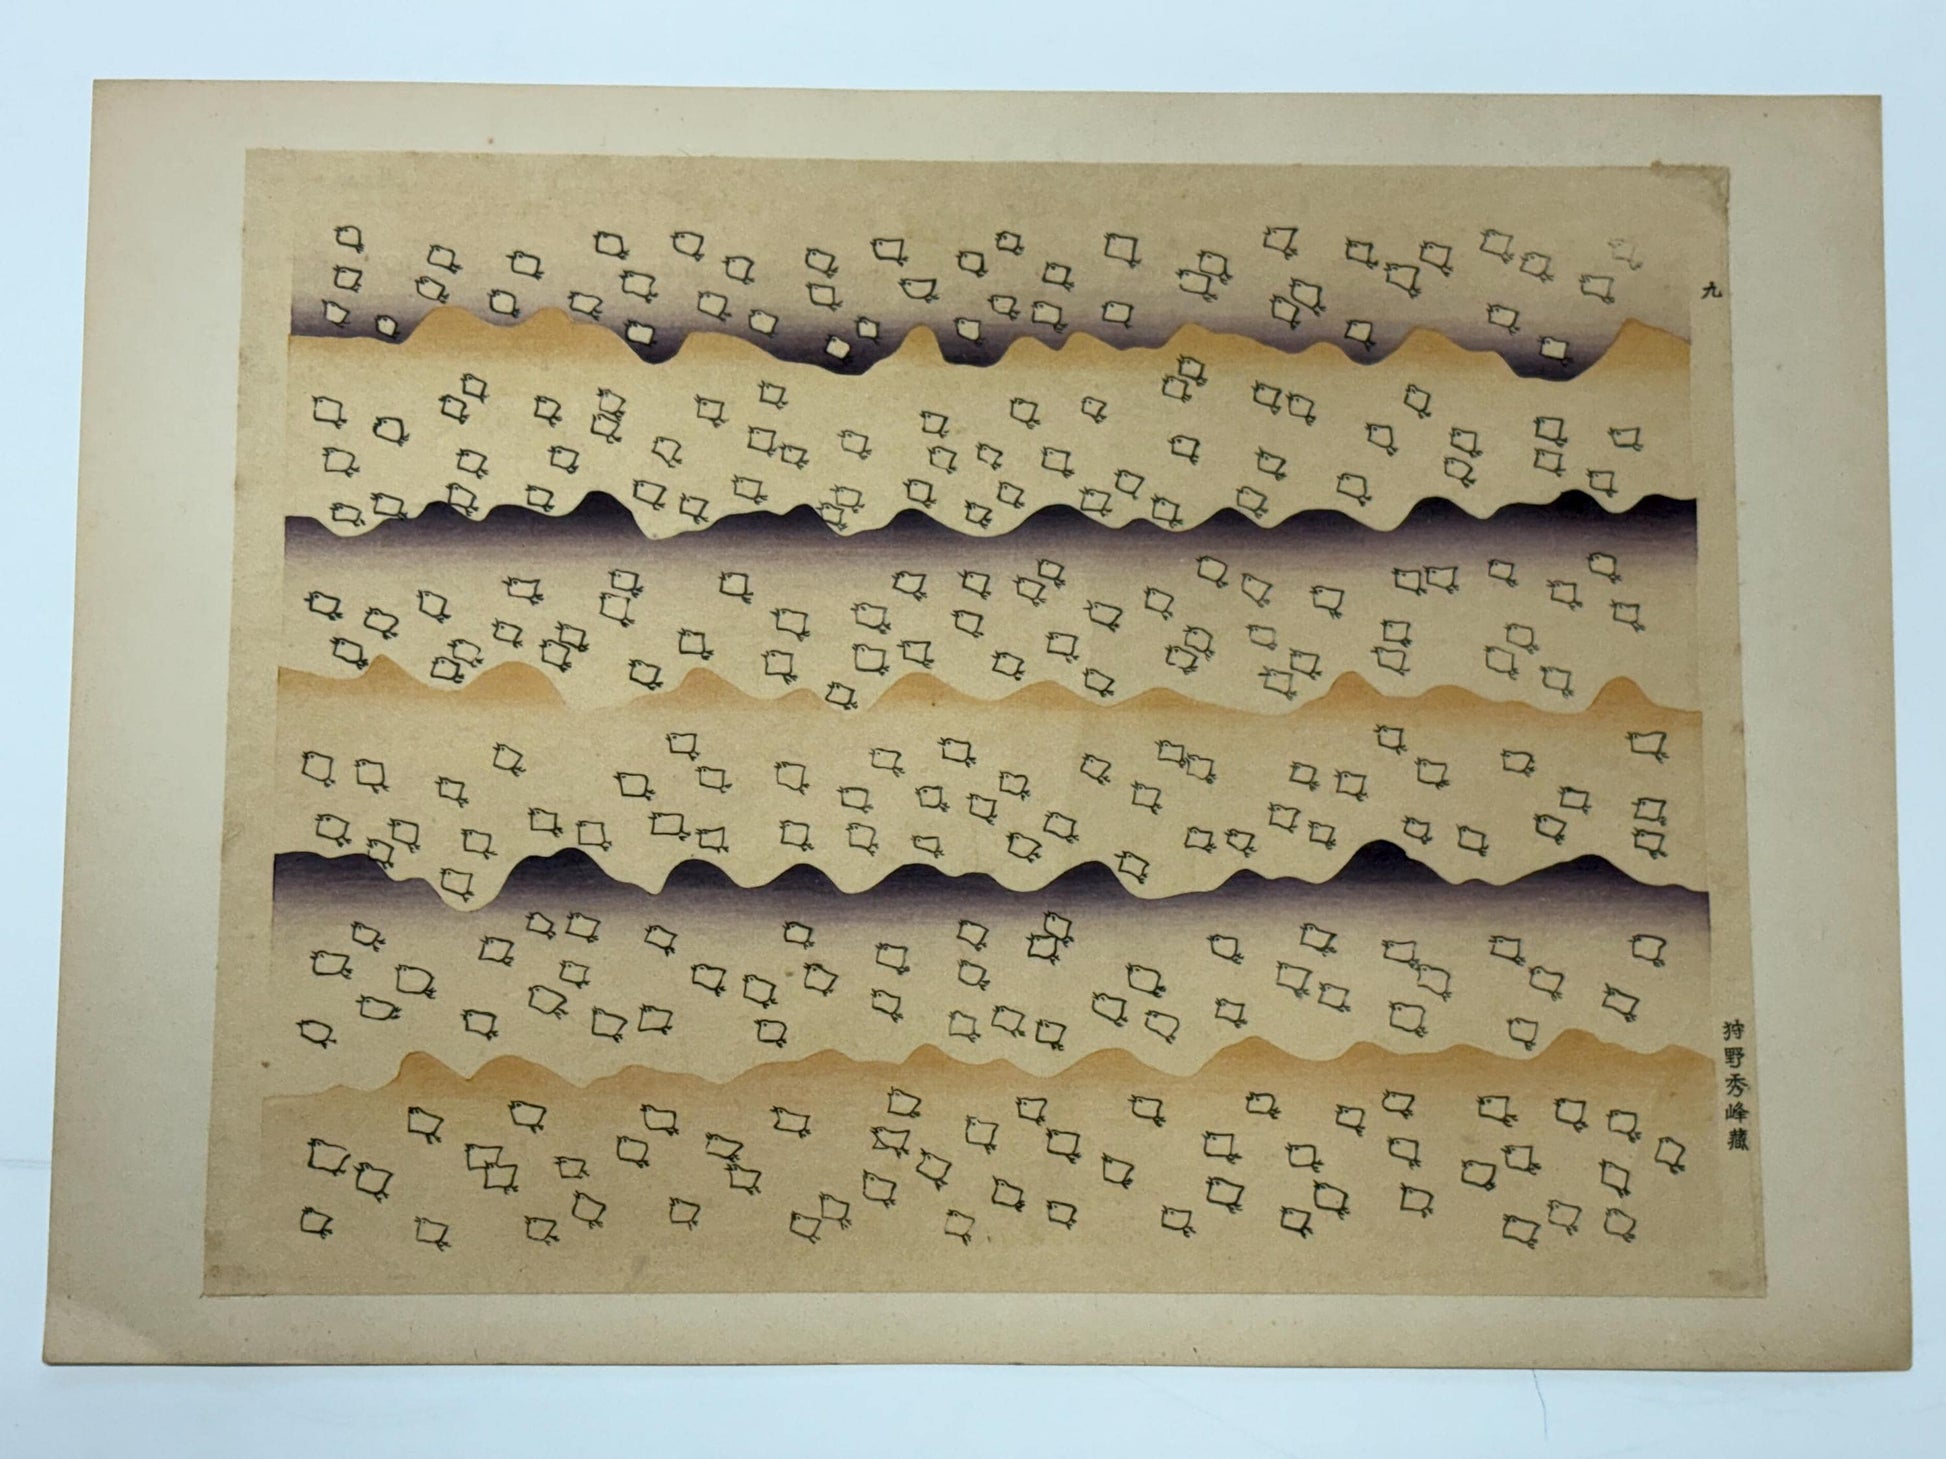 九
狩野秀峰藏